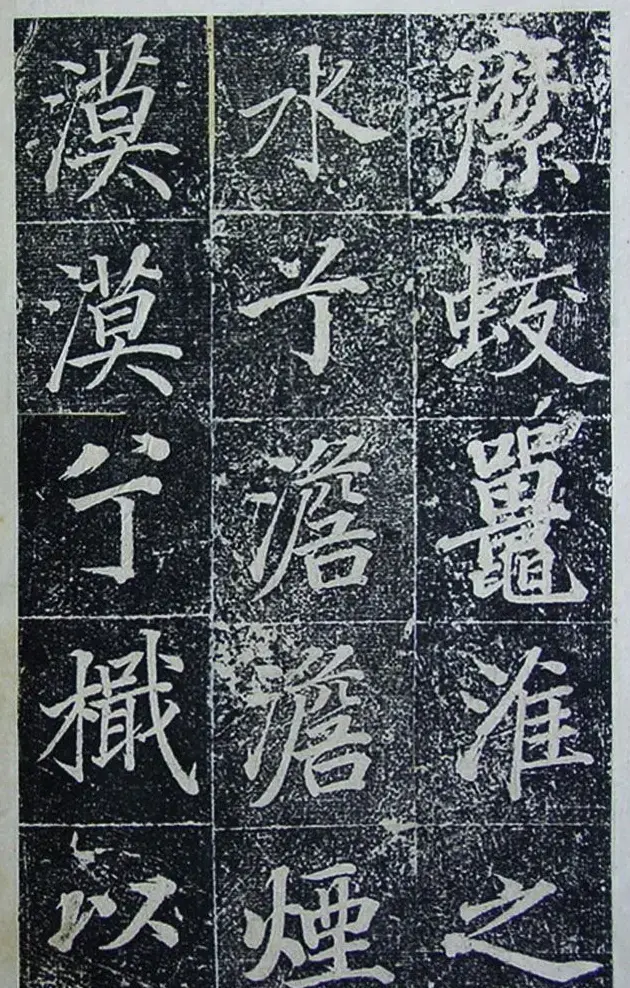 蛟鼉淮之
水兮澹澹煙
漠漠兮以